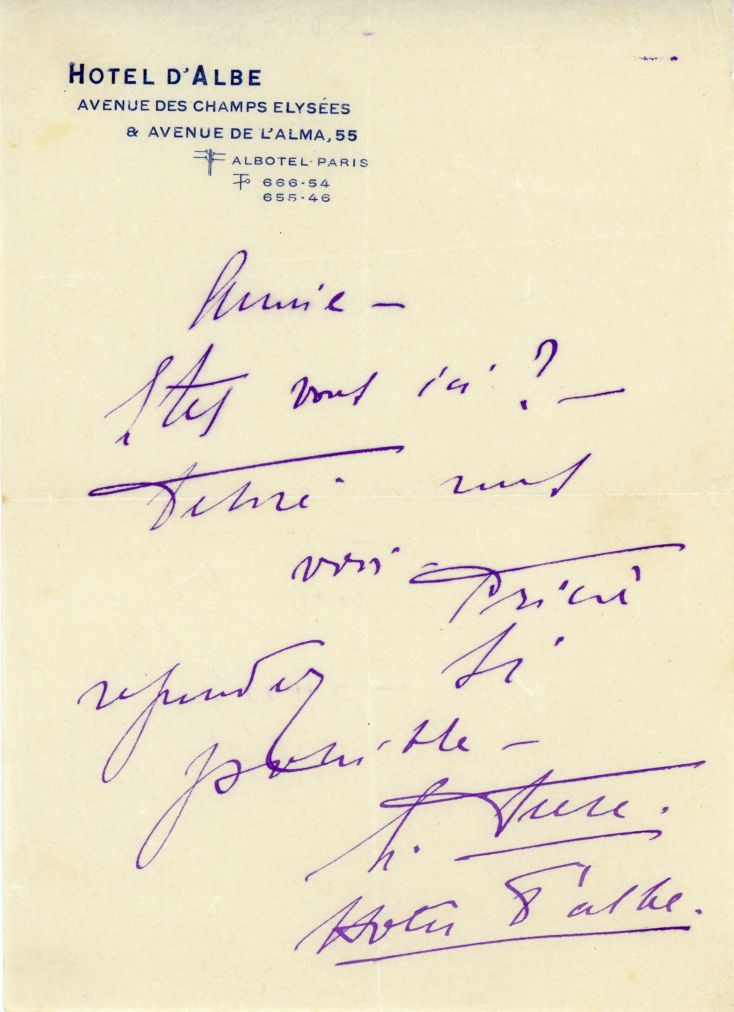 HOTEL D'ALBE
AVENUE DES CHAMPS ELYSÉES
& AVENUE DE L'ALMA, 55
ALBOTEL-PARIS
666-54
655-46
Etes vous ici ? —
Desire vous
voir — Prière
repondez si
possible —
Duse.
Hotel d'albe.